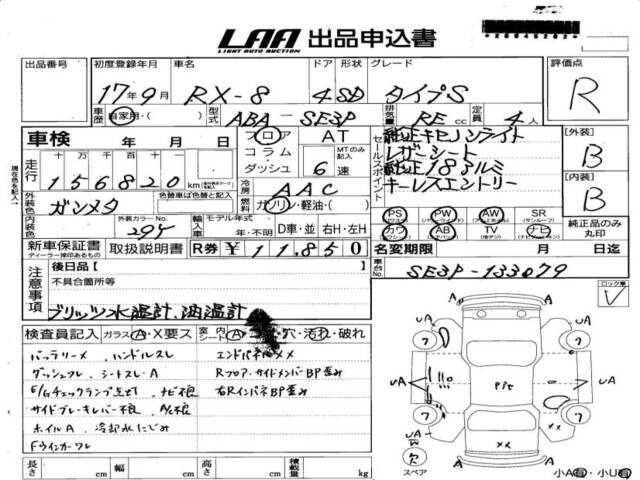 LAA 出品申込書
LIGHT AUTO AUCTION
出品番号 初度登録年月 車名 ドア 形状 グレード 評価点
17年9月 RX-8 4 SD タイプS R
車歴 自家用・( ) 型式 ABA-SE3P 排気量 RE cc 定員 4人
車検 年 月 日 フロア AT
コラム MTのみ記入
ダッシュ 6速
セールスポイント
純正キセノンライト
レザーシート
純正18アルミ
キーレスエントリー
【外装】 B
【内装】 B
現在色を記入
走行 十万 千百十 156820 km
冷房 AAC
外装色 色替車は色替と記入 ガンメタ
燃料 ガソリン・軽油・( )
内装色 外装カラーNo. 29Y
輸入車 モデル年式 年・不明 D車・並 右H・左H
PS PW AW SR
カワ AB TV ナビ
純正品のみ丸印
新車保証書 取扱説明書 R券 ¥11,850
ディーラー捺印あるもの
名変期限 月 日迄
車台No. SE3P-133079
注意事項
後日品[ ]
不具合箇所等
ブリッツ水温計、油温計
検査員記入 ガラス A・X要ス 室内シート A・コゲ・穴・汚れ・破れ
バッテリーメ、ハンドルスレ エンドパネルメメ
ダッシュワレ シートスレA Rフロア・サイドメンバーBP歪み
E/Gチェックランプ点灯 ナビ不良 右RインパネBP歪み
サイドブレーキレバー不良 A/C不良
ホイルA、冷却水にじみ
Fウインカーワレ
ロック車
レ
A A
UA UA
7 7
UA UA
P穴
7 7
UA UA
凹
××
××
欠
スペア
A A
小A有・小U有
長さ cm 幅 cm 高さ cm 積載量 kg